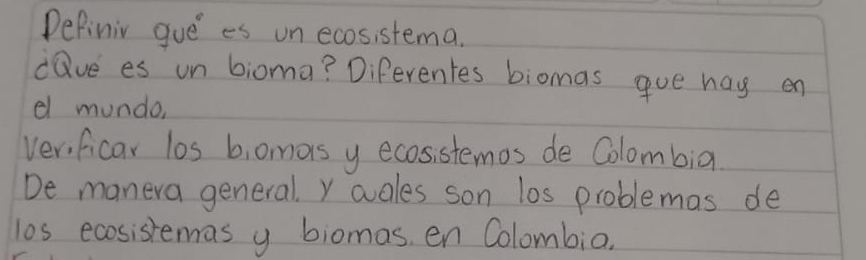 Definir qué es un ecosistema.
¿Qué es un bioma? Diferentes biomas que hay en
el mundo.
Verificar los biomas y ecosistemas de Colombia.
De manera general. y cuales son los problemas de
los ecosistemas y biomas. en Colombia.